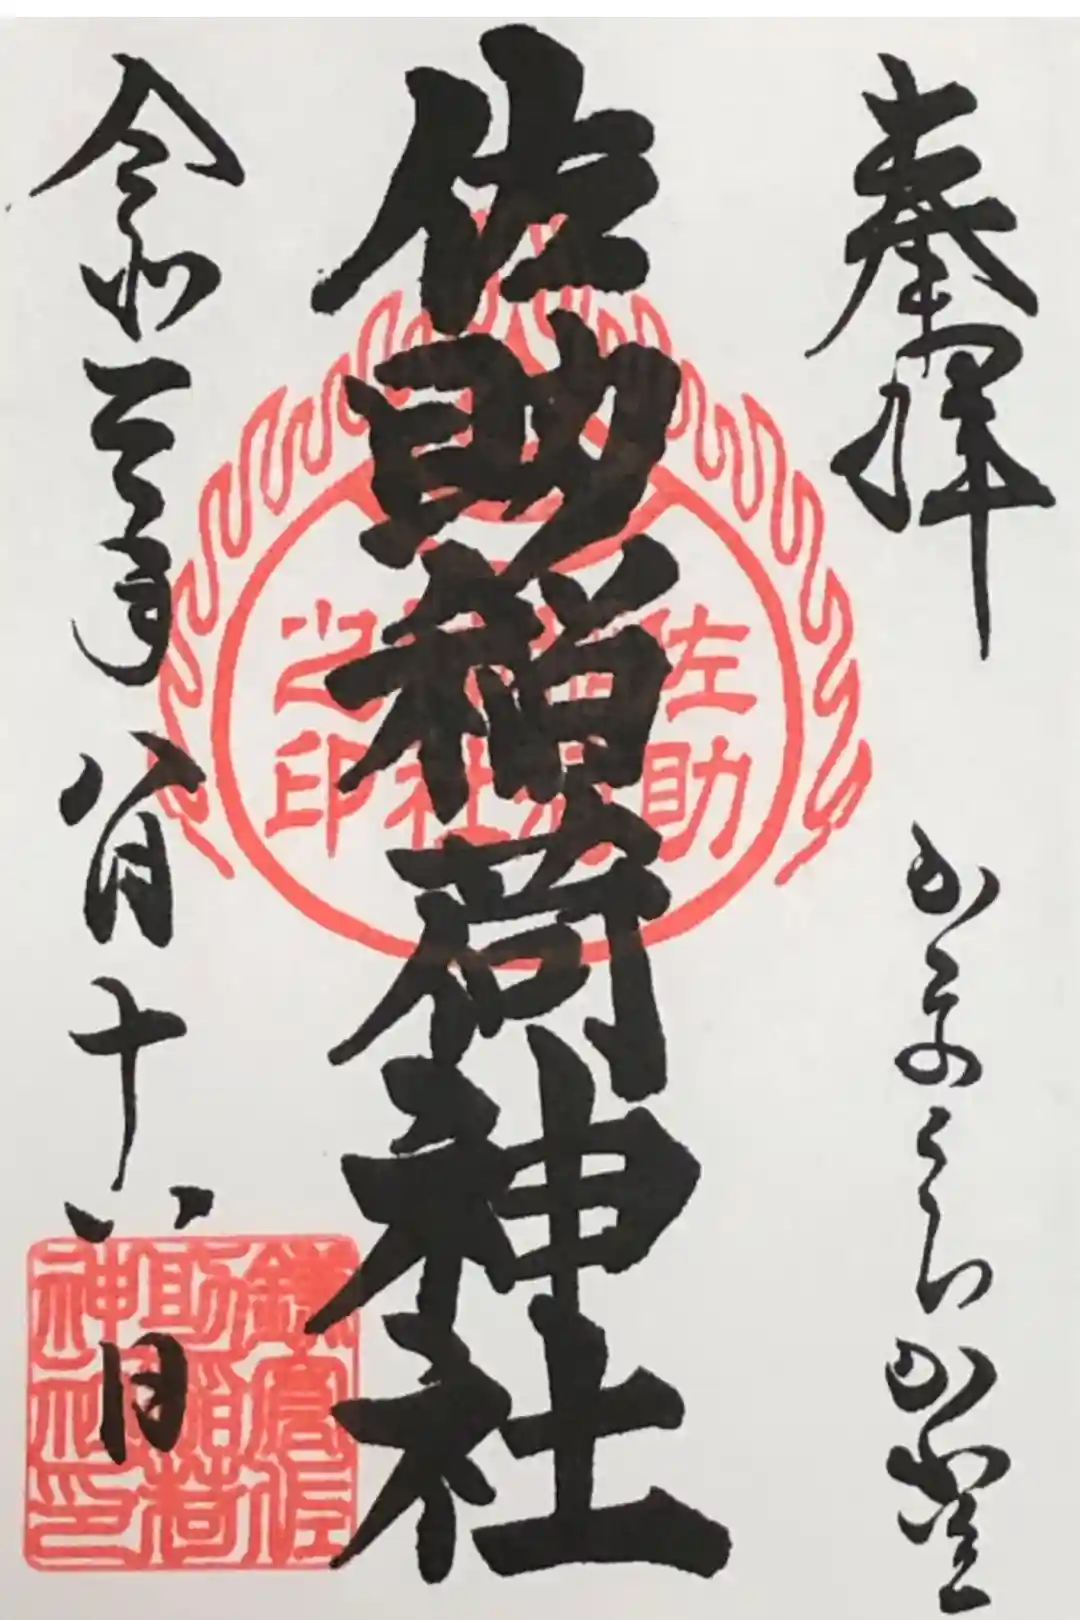 奉拝
かまくらかくれ里
佐助稲荷神社
令和三年八月十八日
佐助
稲荷
神社
之印
鎌倉佐
助稲荷
神社印